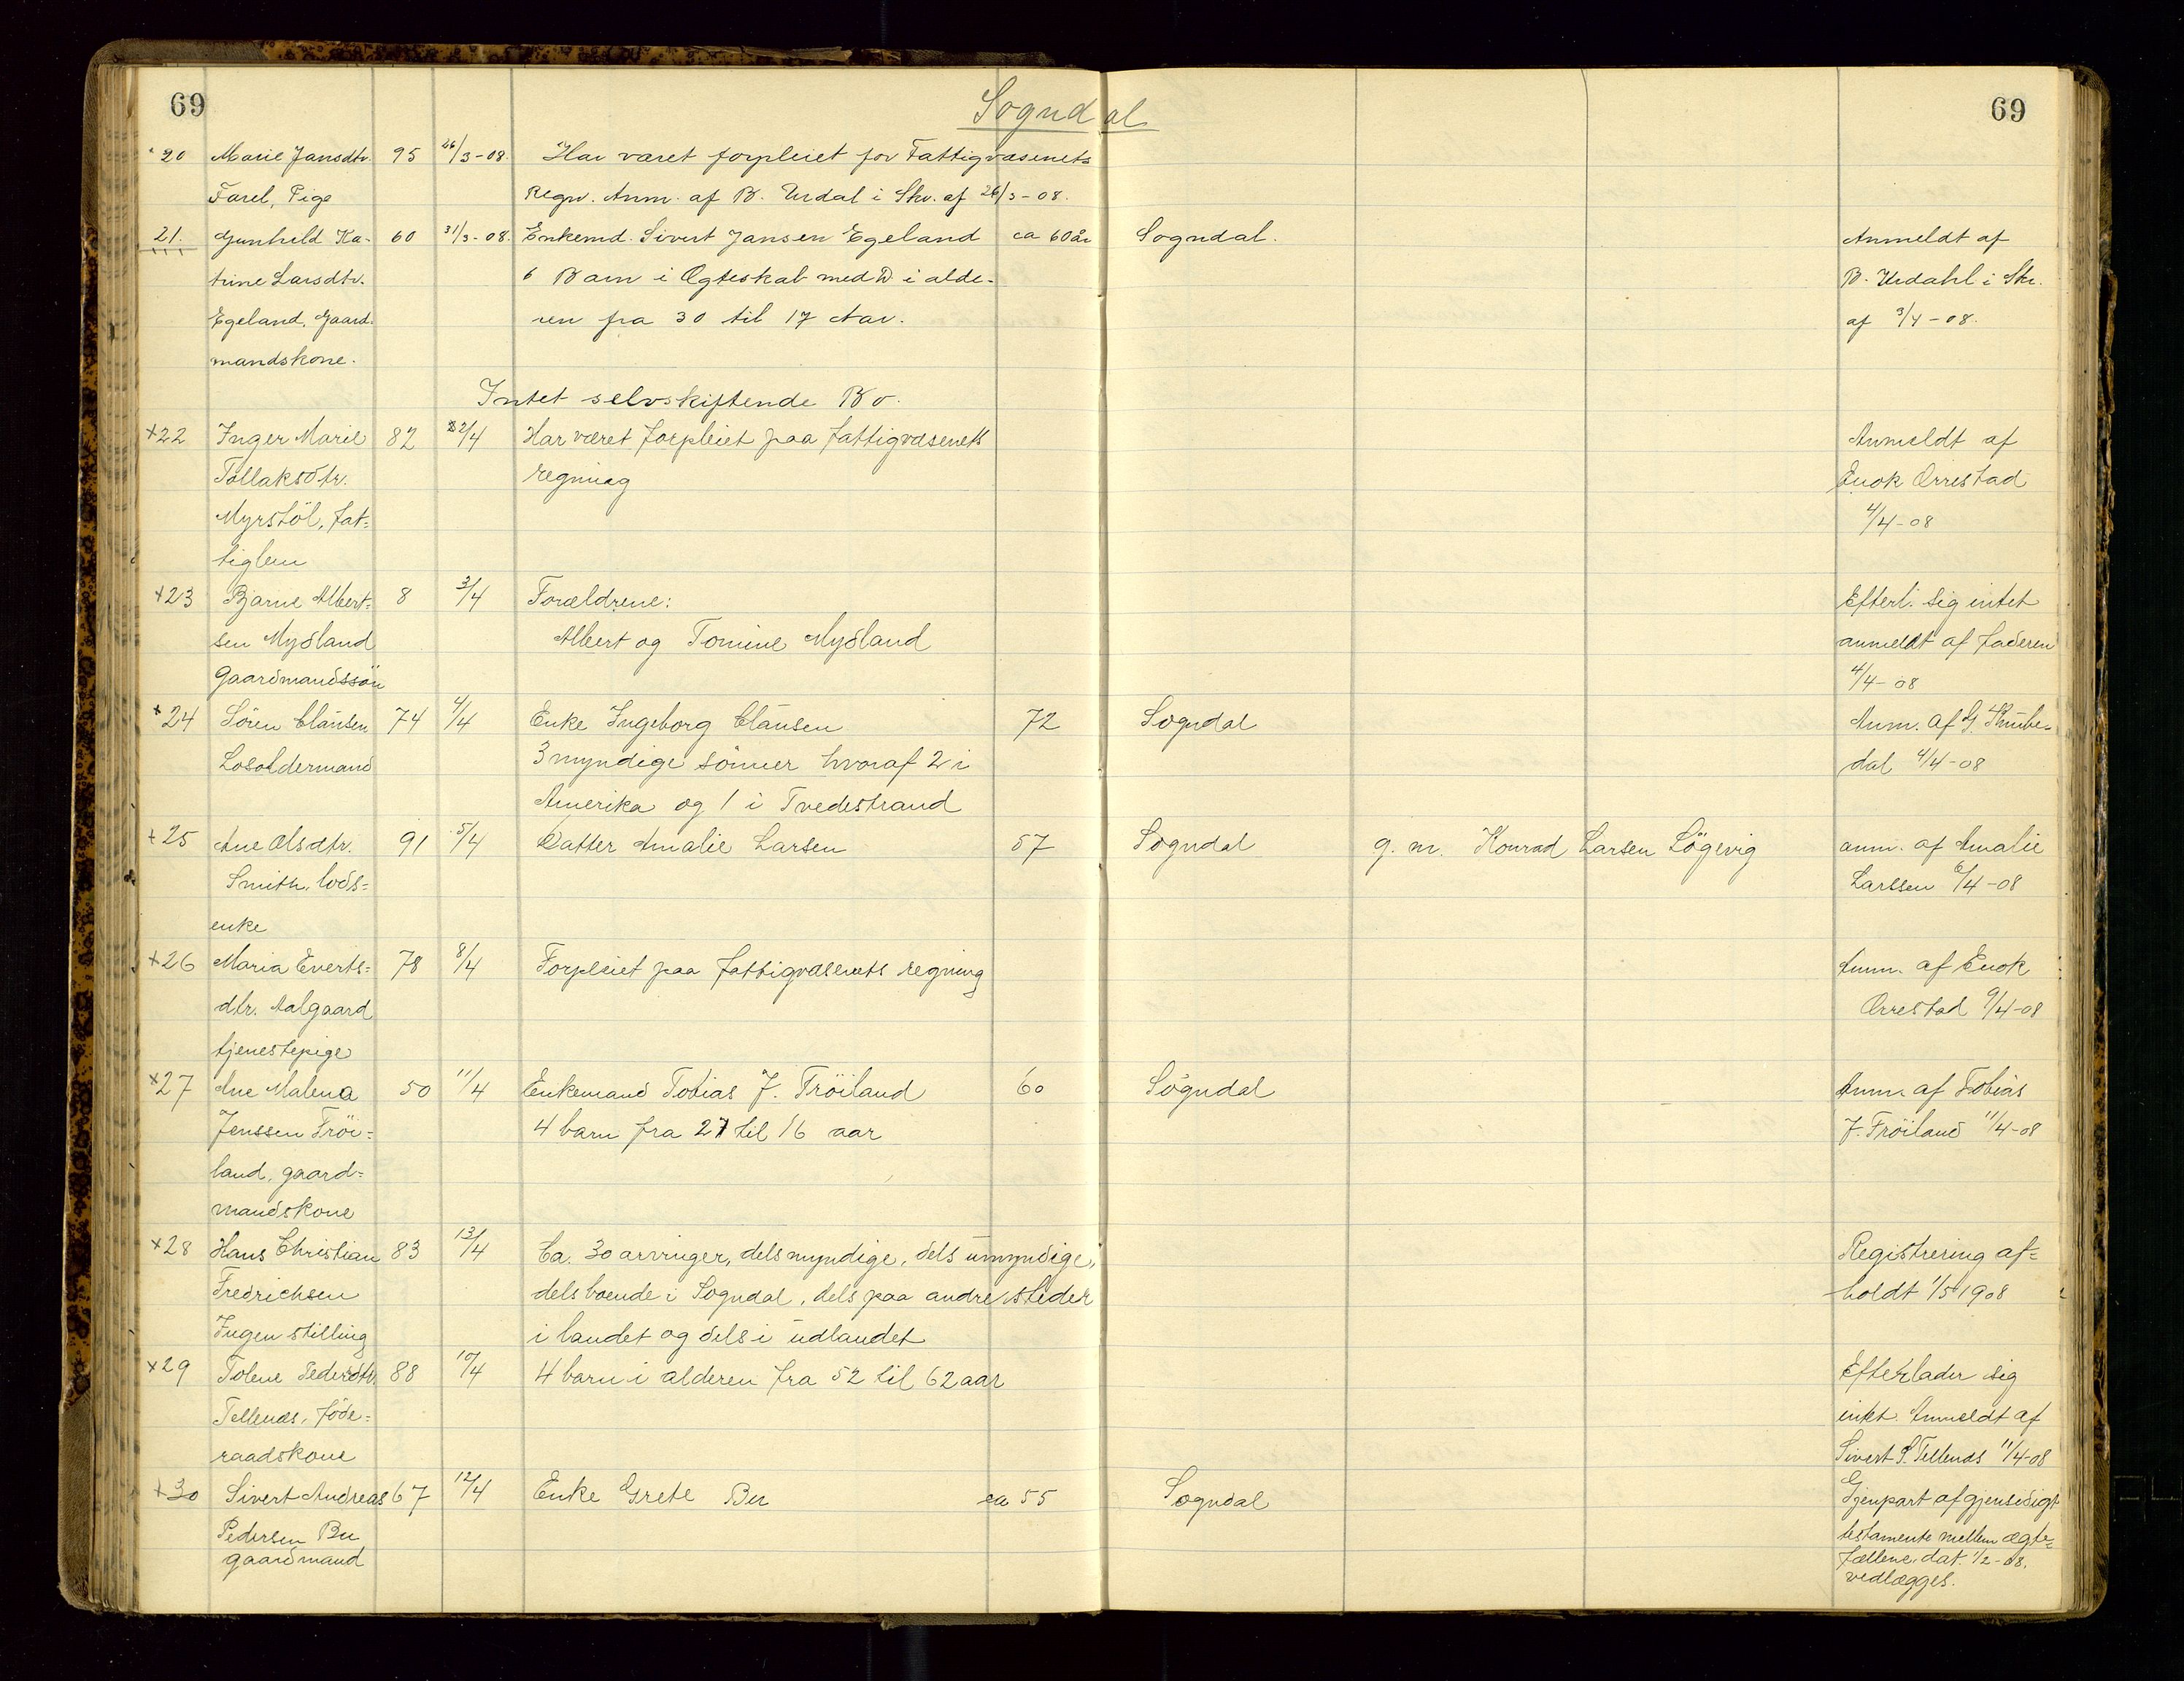 69
Sogndal
69
20 Marie Jansdtr. 95 26/3-08. Har været forpleiet for Fattigvæsenets
Farel, Pige Regn. Anm. af B. Urdal i Skr. af 26/3-08.
21. Gunhild Ka- 60 31/3-08. Enkemd. Sivert Jansen Egeland ca 60 år Sogndal. Anmeldt af
trine Larsdtr. 6 Barn i Ægteskab med D i alde- B. Urdahl i Skr.
Egeland, Gaard- ren fra 30 til 17 Aar. af 3/4-08.
mandskone.
Intet selvskiftende Bo.
+22 Inger Marie 82 2/4 Har været forpleiet paa fattigvæsenets Anmeldt af
Tollaksdtr. regning Enok Orrestad
Myrstöl, fat= 4/4-08
tiglem
+23 Bjarne Albert= 8 3/4 Forældrene: Efterl. sig intet
sen Mydland Albert og Tomine Mydland anmeldt af faderen
Gaardmandssön 4/4-08
+24 Sören Clausen 74 4/4 Enke Ingeborg Clausen 72 Sogndal Anm. af G.
Losoldermand 3 myndige sönner hvoraf 2 i dal 4/4-08
Amerika og 1 i Tvedestrand
+25 Ane Olsdtr. 91 5/4 Datter Amalie Larsen 57 Sogndal g. m. Konrad Larsen Lögevig anm. af Amalie
Smith, lods= Larssen 6/4-08
enke
+26 Maria Everts= 78 8/4 Forpleiet paa fattigvæsenets regning Anm. af Enok
dtr. Aalgaard Orrestad 9/4-08
tjenestepige
+27 Ane Malena 50 11/4 Enkemand Tobias J. Fröiland 60 Sogndal Anm. af Tobias
Jenssen Fröi= 4 barn fra 27 til 16 aar J. Fröiland 11/4-08
land, gaard=
mandskone
+28 Hans Christian 83 13/4 Ca. 30 arvinger, dels myndige, dels umyndige, Registrering af=
Fredrichsen dels boende i Sogndal, dels paa andre steder holdt 1/5 1908
Ingen stilling i landet og dels i udlandet
+29 Tolene Pedersdtr. 88 10/4 4 barn i alderen fra 52 til 62 aar Efterlader sig
Tellenæs, föde= intet. Anmeldt af
raadskone Sivert P. Tellenæs 11/4-08
+30 Sivert Andreas 67 12/4 Enke Grete Bu ca 55 Sogndal Gjenpart af gjensidigt
Pedersen Bu testamente mellem ægte=
gaardmand fællene, dat. 1/2-08.
vedlægges.